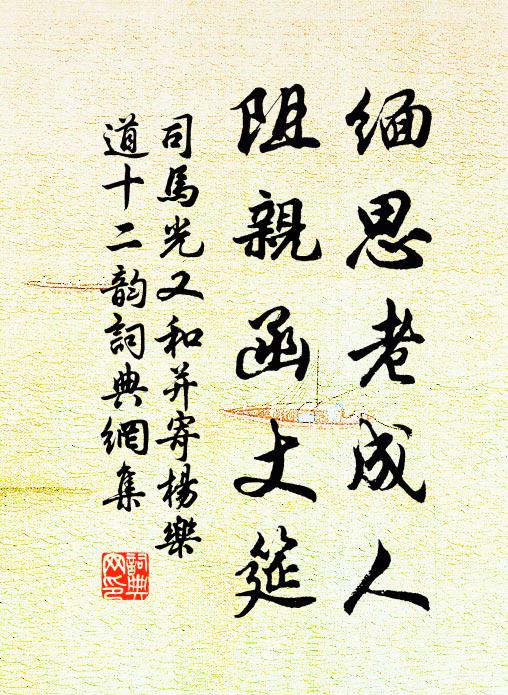 緬思老成人
阻親函丈筵
司馬光又和并寄楊樂
道十二韵詞典網集
詞典
网印